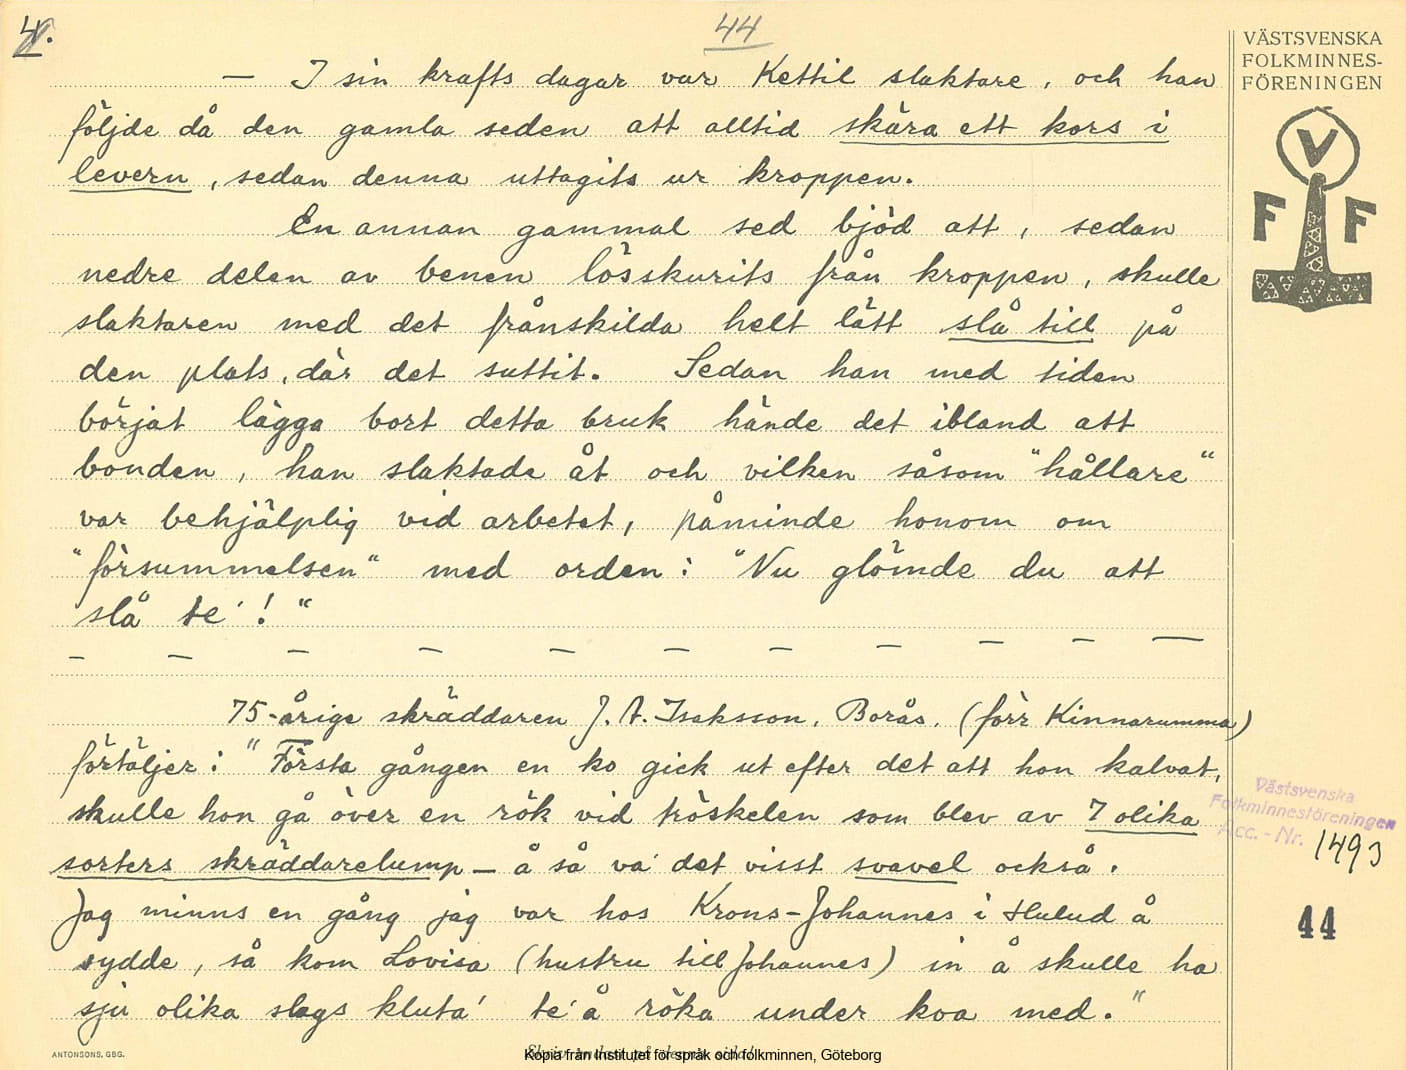 4.
44
VÄSTSVENSKA
FOLKMINNES-
FÖRENINGEN
V
F F
— I sin krafts dagar var Kettil slaktare, och han
följde då den gamla seden att alltid skära ett kors i
levern, sedan denna uttagits ur kroppen.
En annan gammal sed bjöd att, sedan
nedre delen av benen lösskurits från kroppen, skulle
slaktaren med det frånskilda helt lätt slå till på
den plats, där det suttit. Sedan han med tiden
börjat lägga bort detta bruk hände det ibland att
bonden, han slaktade åt och vilken såsom "hållare"
var behjälplig vid arbetet, påminde honom om
"försummelsen" med orden: "Nu glömde du att
slå te´!"
— — — — — — — — — — —
75-årige skräddaren J. A. Isaksson, Borås, (förr Kinnarumma)
förtäljer: "Första gången en ko gick ut efter det att hon kalvat,
skulle hon gå över en rök vid tröskelen som blev av 7 olika
sorters skräddarelump — å så va´ det visst svavel också.
Jag minns en gång jag var hos Krons-Johannes i Hulud å
sydde, så kom Lovisa (hustru till Johannes) in å skulle ha
sju olika slags kluta´ te´ å röka under koa med."
Västsvenska
Folkminnesföreningen
Acc.-Nr. 1493
44
ANTONSONS, GBG.
Kopia från Institutet för språk och folkminnen, Göteborg